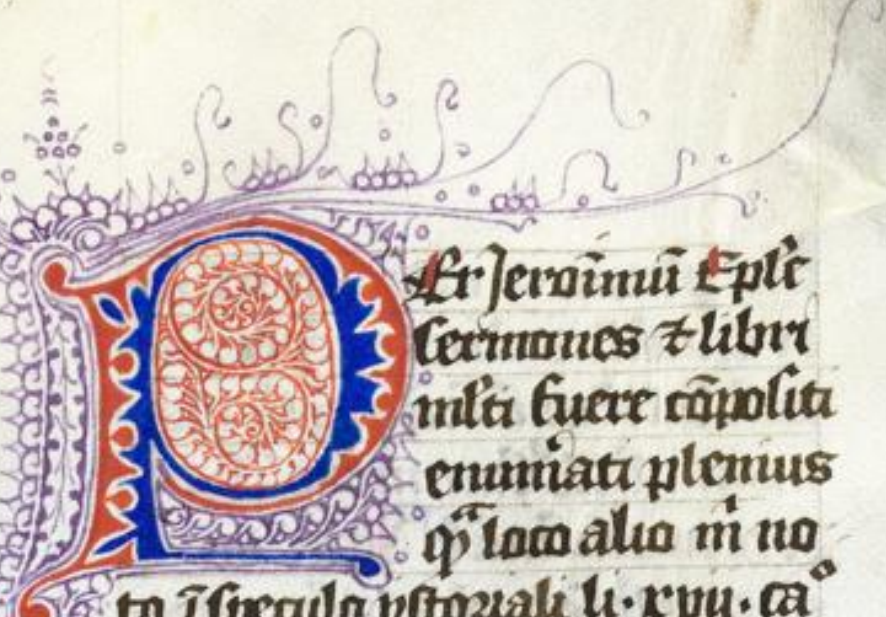 PEr Jeroīmū Epl'e
sermones ⁊ libri
ml'ti fuere cōpositi
enum'ati plenius
qͣ loco alio mͥ no
to ī speculo ystoriali li·xvii·caº